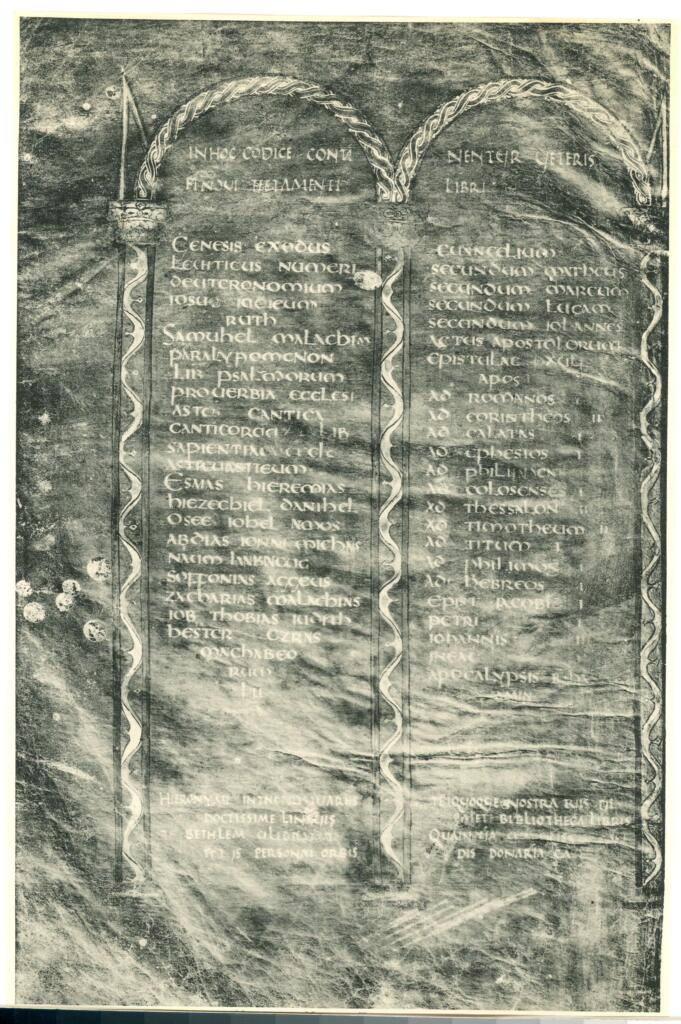 IN HOC CODICE CONTI
ET NOVI TESTAMENTI
GENESIS EXODUS
LEUITICUS NUMERI
DEUTERONOMIUM
IOSUE IUDICUM
RUTH
SAMUHEL MALACHIM
PARALYPOMENON
LIB PSALMORUM
PROUERBIA ECCLESI
ASTES CANTICA
CANTICORUM LIB
SAPIENTIAE
ESAIAS HIEREMIAS
HIEZECHIEL DANIHEL
OSEE IOHEL AMOS
ABDIAS IONAS MICHAS
NAUM
SOFFONIAS AGGEUS
ZACHARIAS MALACHIAS
IOB THOBIAS IUDITH
HESTER EZRAS
MACHABEO
RUM
NENTUR VETERIS
LIBRI
EUANGELIUM
SECUNDUM MATHEUS
SECUNDUM MARCUM
SECUNDUM LUCAM
SECUNDUM IOHANNES
ACTUS APOSTOLORUM
EPISTULAE
APOS
AD ROMANOS I
AD CORINTHEOS II
AD GALATAS I
AD EPHESIOS I
AD
AD COLOSENSES I
AD THESSALON II
AD TIMOTHEUM II
AD TITUM I
AD
AD HEBREOS I
EPIST IACOBI I
PETRI
IOHANNIS
APOCALYPSIS
DOCTISSIME LINGUIS
BETHLEM
PERSONAT ORBIS
NOSTRA
BIBLIOTHECA LIBRIS
DONARIA